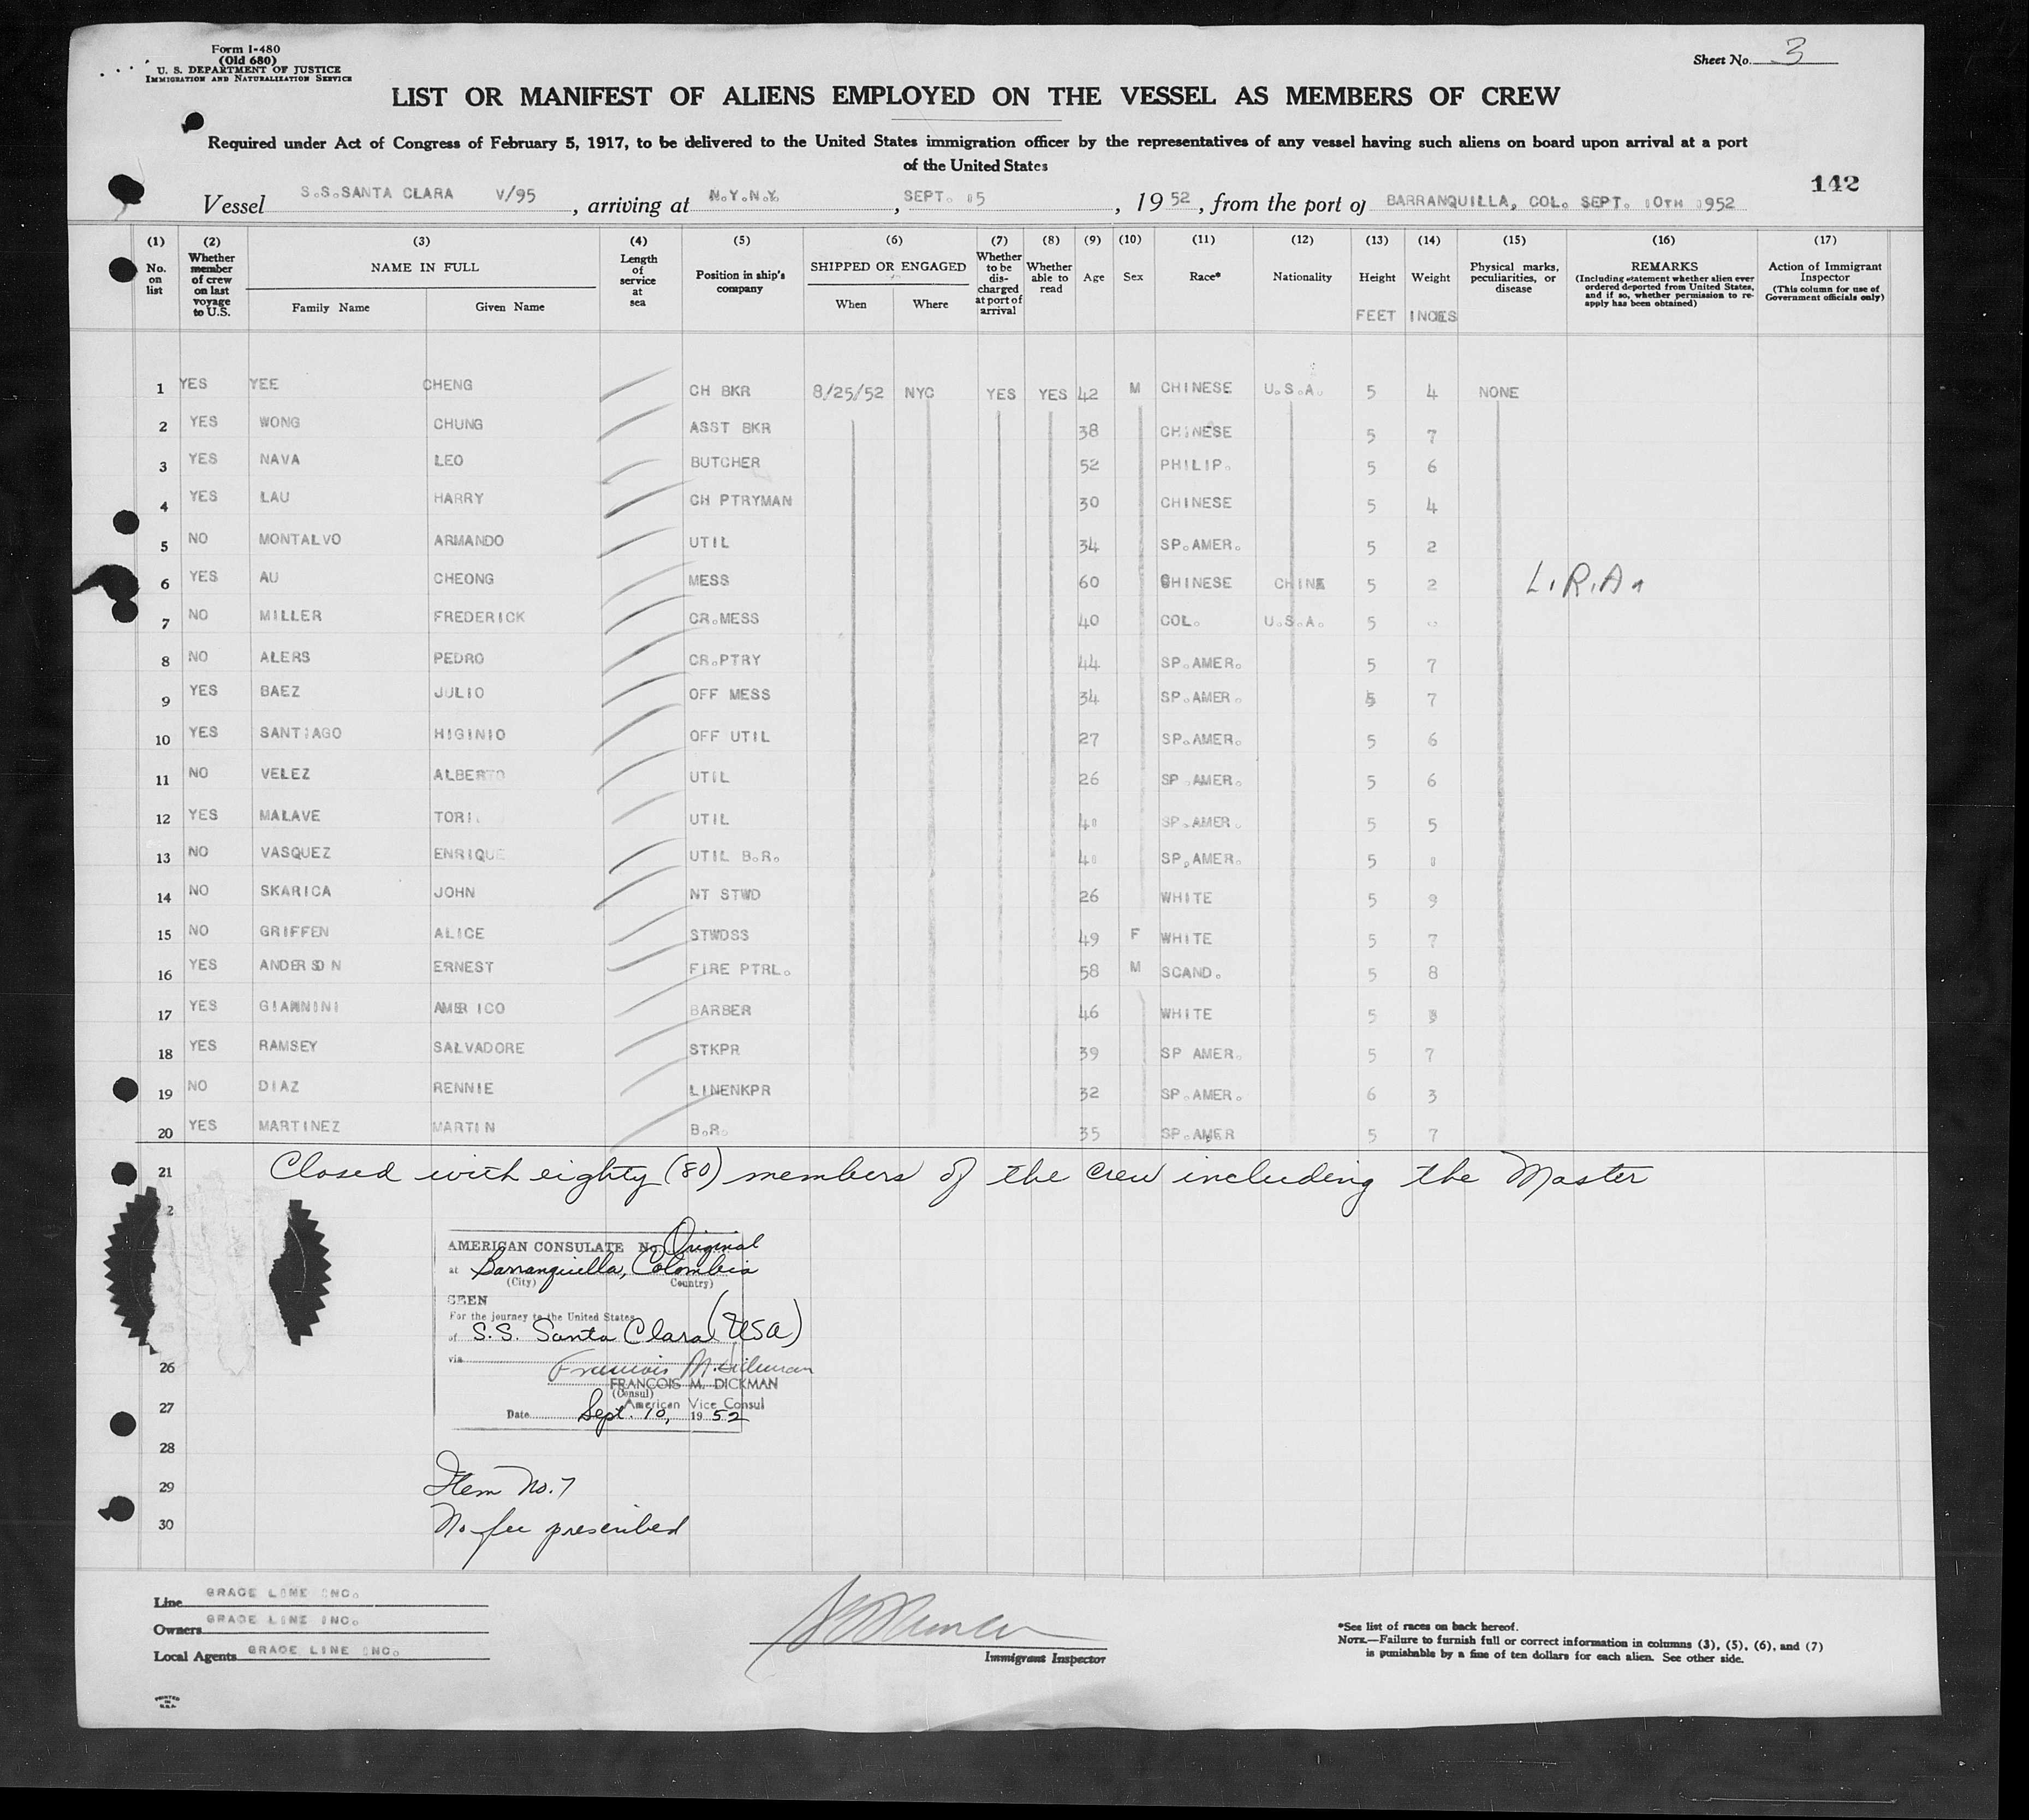 Form I-480
(Old 680)
U. S. DEPARTMENT OF JUSTICE
IMMIGRATION AND NATURALIZATION SERVICE
Sheet No. 3
LIST OR MANIFEST OF ALIENS EMPLOYED ON THE VESSEL AS MEMBERS OF CREW
Required under Act of Congress of February 5, 1917, to be delivered to the United States immigration officer by the representatives of any vessel having such aliens on board upon arrival at a port
of the United States
142
Vessel S.S.SANTA CLARA V/95, arriving at N.Y.N.Y., SEPT. 15, 1952, from the port of BARRANQUILLA, COL. SEPT. 10TH 1952
(1) (2) (3) (4) (5) (6) (7) (8) (9) (10) (11) (12) (13) (14) (15) (16) (17)
No. on list
Whether member of crew on last voyage to U.S.
NAME IN FULL
Family Name Given Name
Length of service at sea
Position in ship's company
SHIPPED OR ENGAGED
When Where
Whether to be discharged at port of arrival
Whether able to read
Age
Sex
Race*
Nationality
Height
FEET
Weight
INCES
Physical marks, peculiarities, or disease
REMARKS
(Including statement whether alien ever ordered deported from United States, and if so, whether permission to re-apply has been obtained)
Action of Immigrant Inspector
(This column for use of Government officials only)
1 YES YEE CHENG CH BKR 8/25/52 NYC YES YES 42 M CHINESE U.S.A. 5 4 NONE
2 YES WONG CHUNG ASST BKR 38 CHINESE 5 7
3 YES NAVA LEO BUTCHER 52 PHILIP. 5 6
4 YES LAU HARRY CH PTRYMAN 30 CHINESE 5 4
5 NO MONTALVO ARMANDO UTIL 34 SP.AMER. 5 2
6 YES AU CHEONG MESS 60 CHINESE CHINA 5 2 L.R.A.
7 NO MILLER FREDERICK CR.MESS 40 COL. U.S.A. 5
8 NO ALERS PEDRO CR.PTRY 44 SP.AMER. 5 7
9 YES BAEZ JULIO OFF MESS 34 SP.AMER. 5 7
10 YES SANTIAGO HIGINIO OFF UTIL 27 SP.AMER. 5 6
11 NO VELEZ ALBERTO UTIL 26 SP.AMER. 5 6
12 YES MALAVE UTIL SP.AMER. 5 5
13 NO VASQUEZ ENRIQUE UTIL B.R. SP.AMER. 5
14 NO SKARICA JOHN NT STWD 26 WHITE 5 9
15 NO GRIFFEN ALICE STWDSS 49 F WHITE 5 7
16 YES ANDERSON ERNEST FIRE PTRL. 58 M SCAND. 5 8
17 YES GIANNINI AMERICO BARBER 46 WHITE 5
18 YES RAMSEY SALVADORE STKPR 39 SP AMER. 5 7
19 NO DIAZ RENNIE LINENKPR 32 SP.AMER. 6 3
20 YES MARTINEZ MARTIN B.R. 35 SP.AMER 5 7
21 Closed with eighty (80) members of the crew including the Master
2
AMERICAN CONSULATE No. Original
at Barranquilla, Colombia
(City) Country)
SEEN
For the journey to the United States
of S.S. Santa Clara (USA)
via
26
FRANCOIS M. DICKMAN
(Consul)
American Vice Consul
27
Date Sept. 10, 1952
28
29 Item No. 7
30 No fee prescribed
Line GRACE LINE INC.
Owners GRACE LINE INC.
Local Agents GRACE LINE INC.
Immigrant Inspector
*See list of races on back hereof.
NOTE.—Failure to furnish full or correct information in columns (3), (5), (6), and (7)
is punishable by a fine of ten dollars for each alien. See other side.
PRINTED
IN
U.S.A.